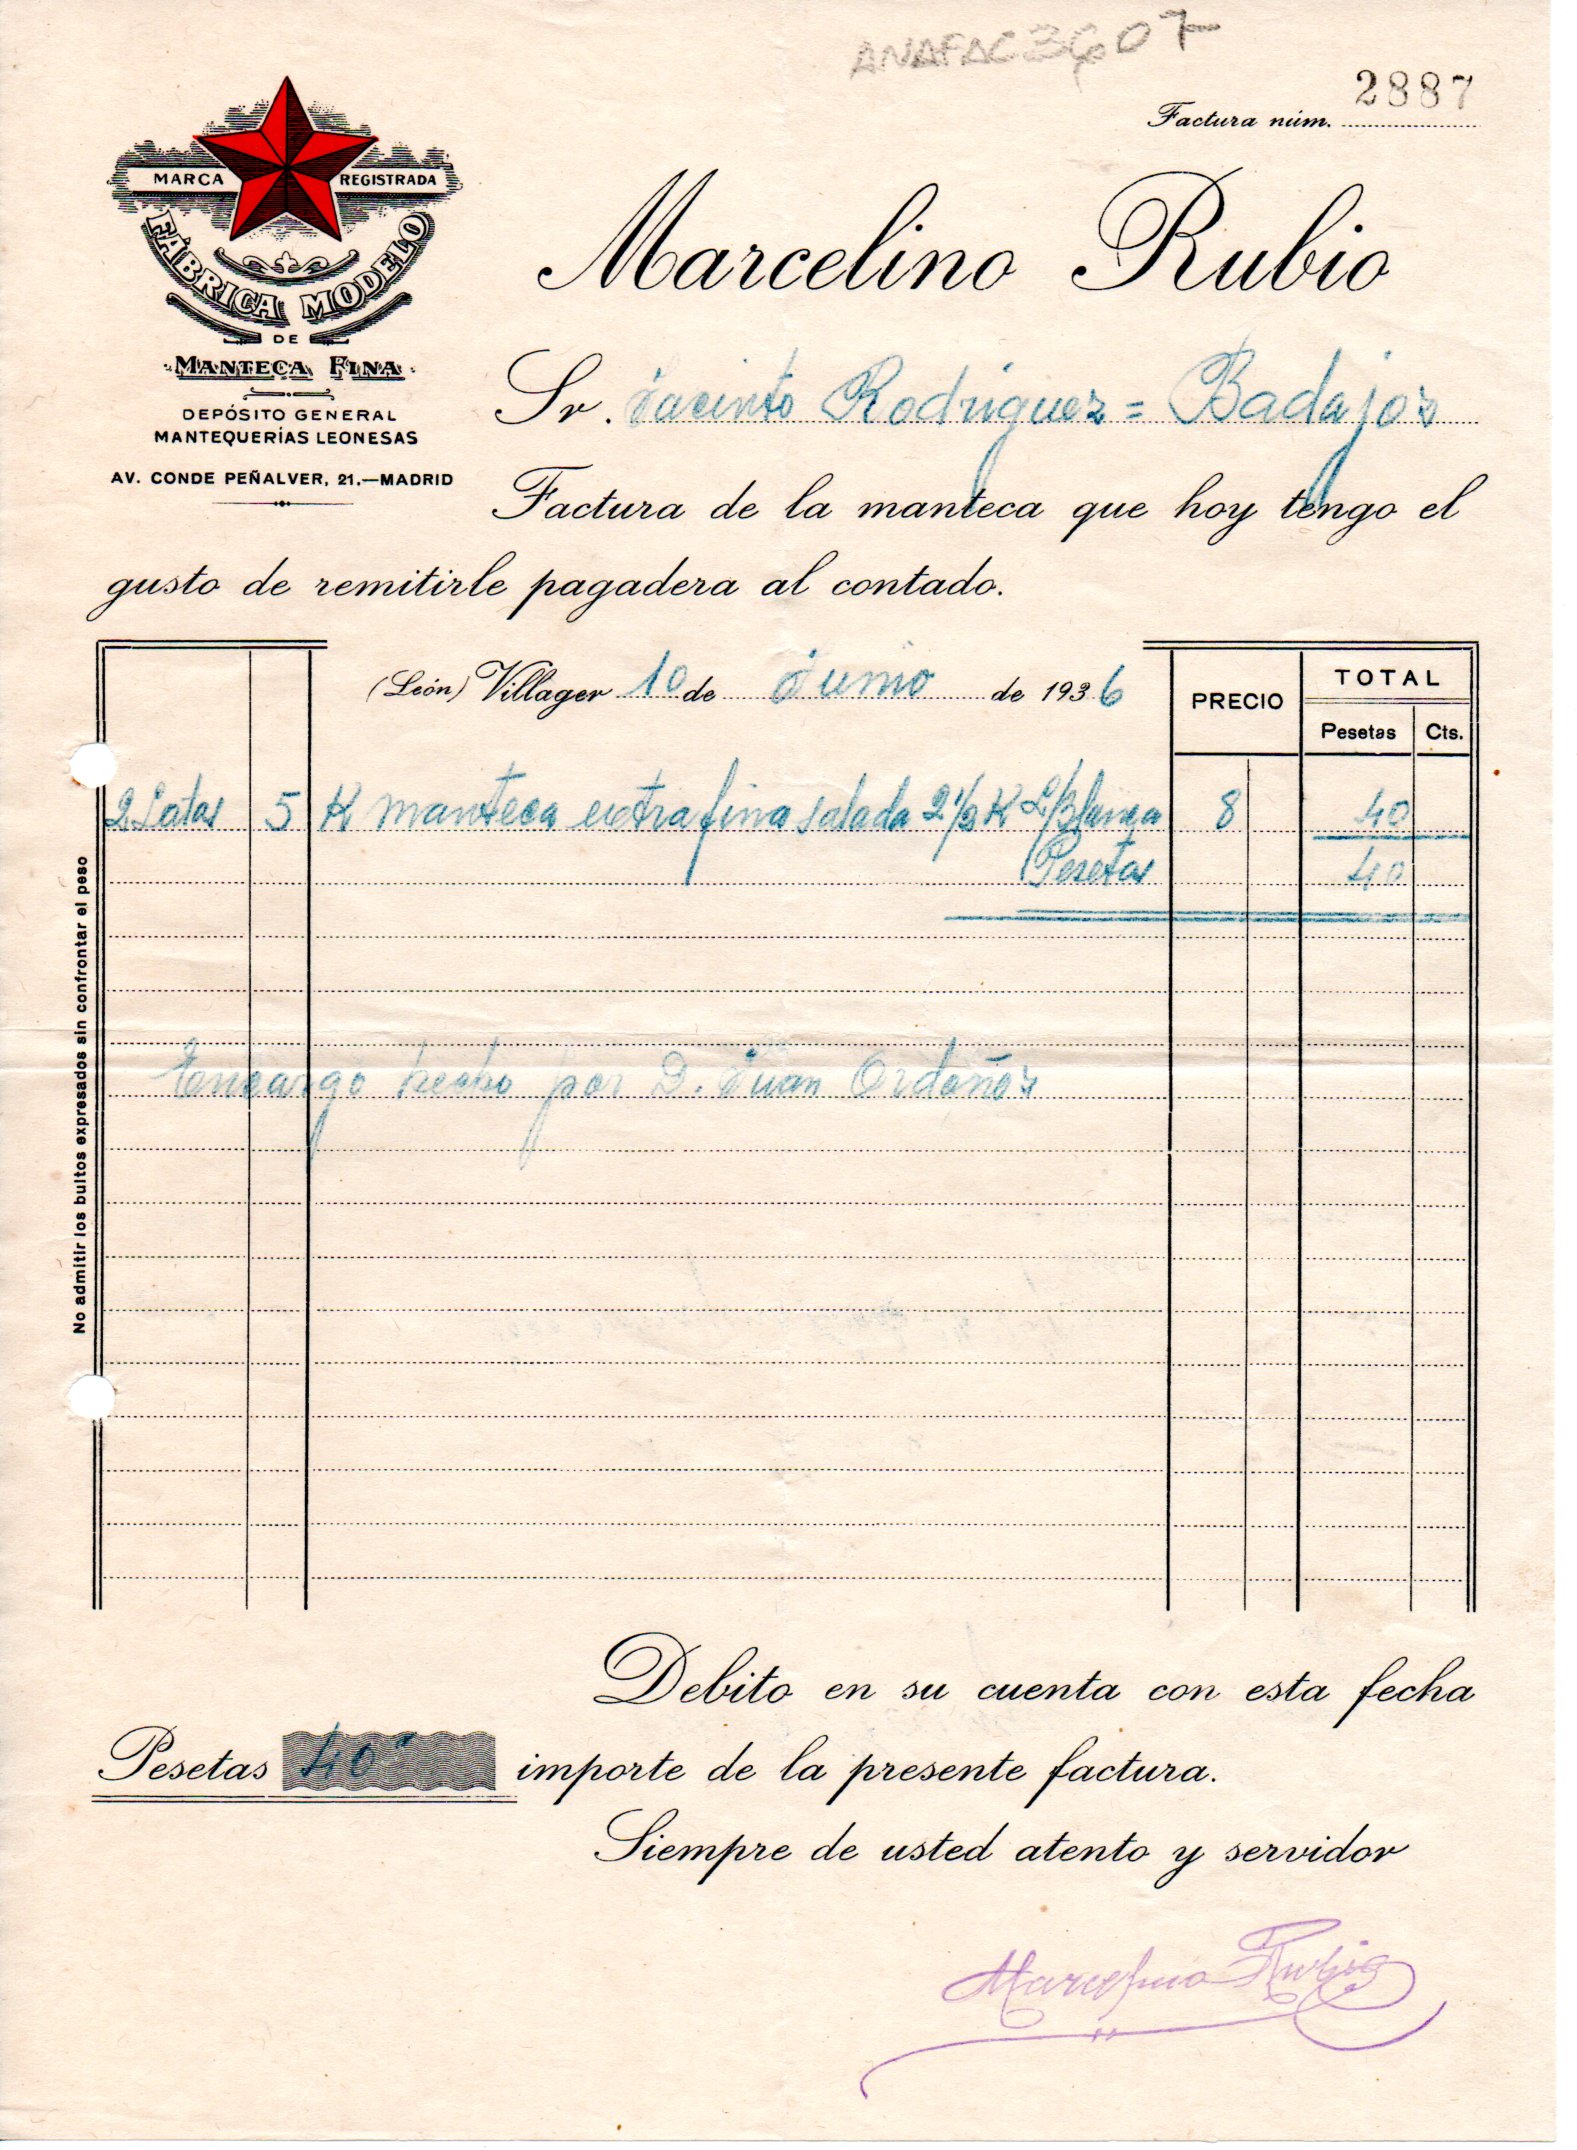 ANAFAC3607
Factura núm. 2887
MARCA REGISTRADA
FÁBRICA MODELO
DE
MANTECA FINA
DEPÓSITO GENERAL
MANTEQUERÍAS LEONESAS
AV. CONDE PEÑALVER, 21.—MADRID
Marcelino Rubio
Sr. Jacinto Rodriguez = Badajoz
Factura de la manteca que hoy tengo el
gusto de remitirle pagadera al contado.
(León) Villager 10 de Junio de 1936
PRECIO
TOTAL
Pesetas Cts.
2 Latas 5 K manteca extrafina salada 2 1/2 K L/Blanca 8 40
Pesetas 40
Encargo hecho por D. Juan Ordoñoz
No admitir los bultos expresados sin confrontar el peso
Debito en su cuenta con esta fecha
Pesetas 40" importe de la presente factura.
Siempre de usted atento y servidor
Marcelino Rubio